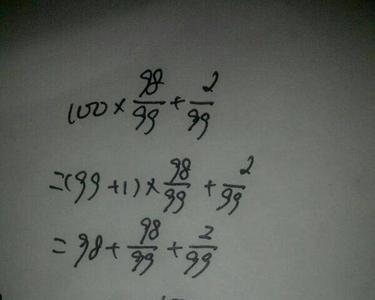 100 × 98/99 + 2/99
=(99+1) × 98/99 + 2/99
= 98 + 98/99 + 2/99